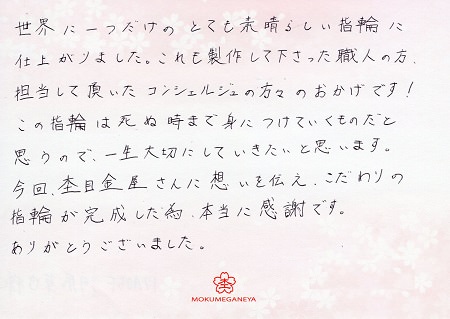 世界に一つだけの とても素晴らしい指輪に
仕上がりました。これも製作して下さった職人の方、
担当して頂いた コンシェルジュの方々のおかげです!
この指輪は死ぬ時まで身につけていくものだと
思うので、一生大切にしていきたいと思います。
今回、杢目金屋さんに想いを伝え、こだわりの
指輪が完成した為、本当に感謝です。
ありがとうございました。
MOKUMEGANEYA